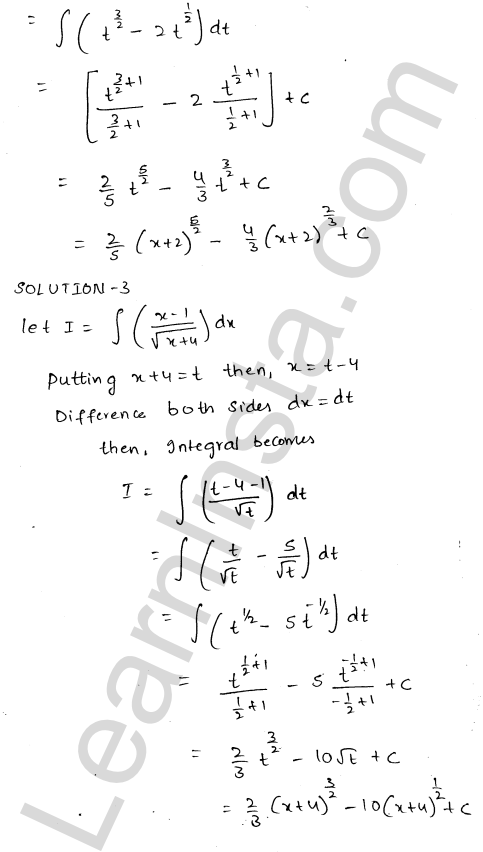 = ∫ ( t^{3/2} - 2 t^{1/2} ) dt
= [ t^{3/2+1} / (3/2+1) - 2 t^{1/2+1} / (1/2+1) ] + c
= 2/5 t^{5/2} - 4/3 t^{3/2} + c
= 2/5 (x+2)^{5/2} - 4/3 (x+2)^{2/3} + c
SOLUTION-3
let I = ∫ ( (x-1) / √(x+4) ) dx
Putting x+4=t then, x=t-4
Difference both sides dx=dt
then, Integral becomes
I = ∫ ( (t-4-1) / √t ) dt
= ∫ ( t/√t - 5/√t ) dt
= ∫ ( t^{1/2} - 5t^{-1/2} ) dt
= t^{1/2+1} / (1/2+1) - 5 t^{-1/2+1} / (-1/2+1) + c
= 2/3 t^{3/2} - 10√t + c
= 2/3 (x+4)^{3/2} - 10(x+4)^{1/2} + c
LearnInsta.com